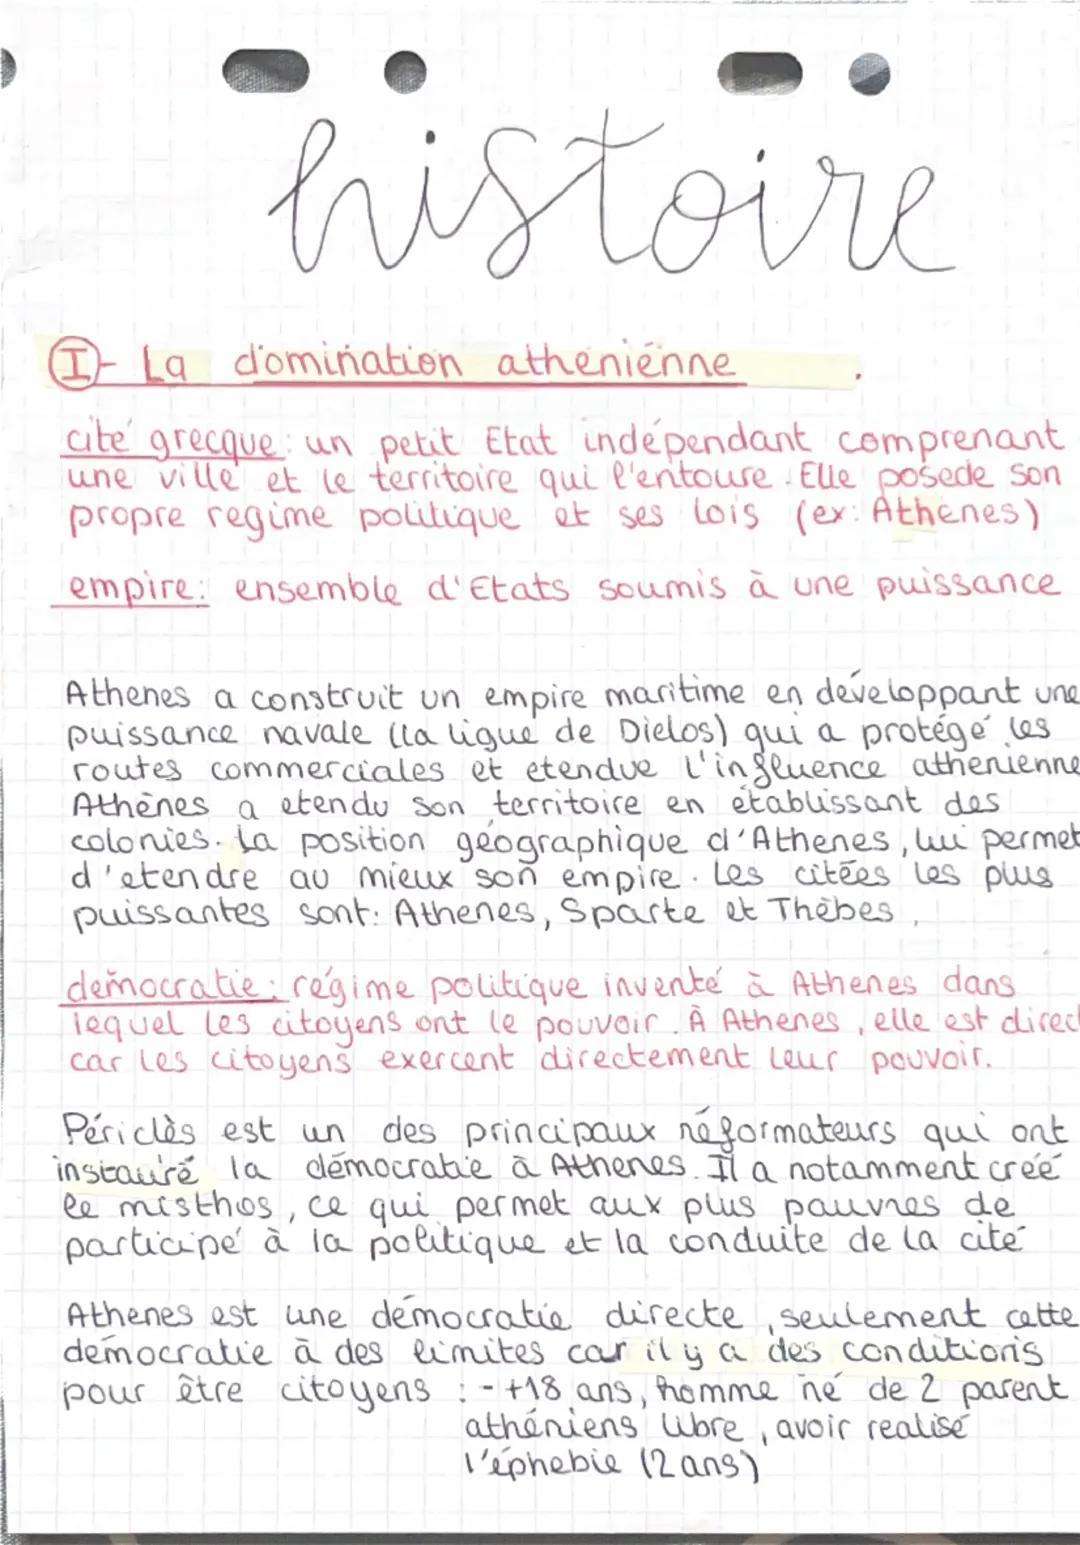 histoire
I - La domination athéniénne
cité grecque : un petit Etat indépendant comprenant
une ville et le territoire qui l'entoure. Elle posede son
propre regime politique et ses lois (ex: Athènes)
empire : ensemble d'Etats soumis à une puissance
Athenes a construit un empire maritime en développant une
puissance navale (la ligue de Dielos) qui a protégé les
routes commerciales et etendue l'influence athenienne
Athènes a etendu son territoire en établissant des
colonies. La position géographique d'Athenes, lui permet
d'etendre au mieux son empire. Les citées les plus
puissantes sont: Athenes, Sparte et Thèbes,
démocratie : régime politique inventé à Athenes dans
lequel les citoyens ont le pouvoir. À Athenes, elle est direct
car les citoyens exercent directement leur pouvoir.
Périclès est un des principaux réformateurs qui ont
instauré la démocratie à Athenes. Il a notamment créé
le misthos, ce qui permet aux plus pauvres de
participé à la politique et la conduite de la cité
Athenes est une démocratie directe, seulement cette
démocratie à des limites car il y a des conditions
pour être citoyens : - +18 ans, homme né de 2 parent
athéniens libre, avoir realisé
l'éphebie (2 ans)